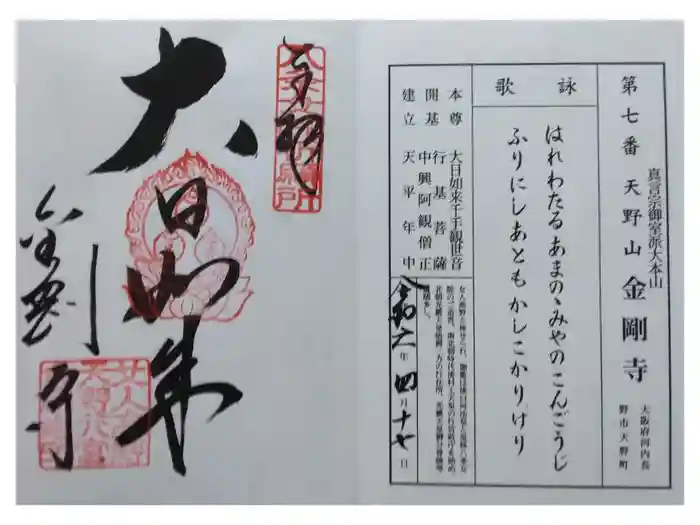 真言宗御室派大本山
第七番 天野山 金剛寺
大阪府河内長
野市天野町
詠歌
はれわたるあまのゝみやのこんごうじ
ふりにしあともかしこかりけり
本尊 大日如来千手観世音
開基 行基菩薩
中興阿観僧正
建立 天平年中
令和六年四月十七日
奉拝
大日如来
金剛寺